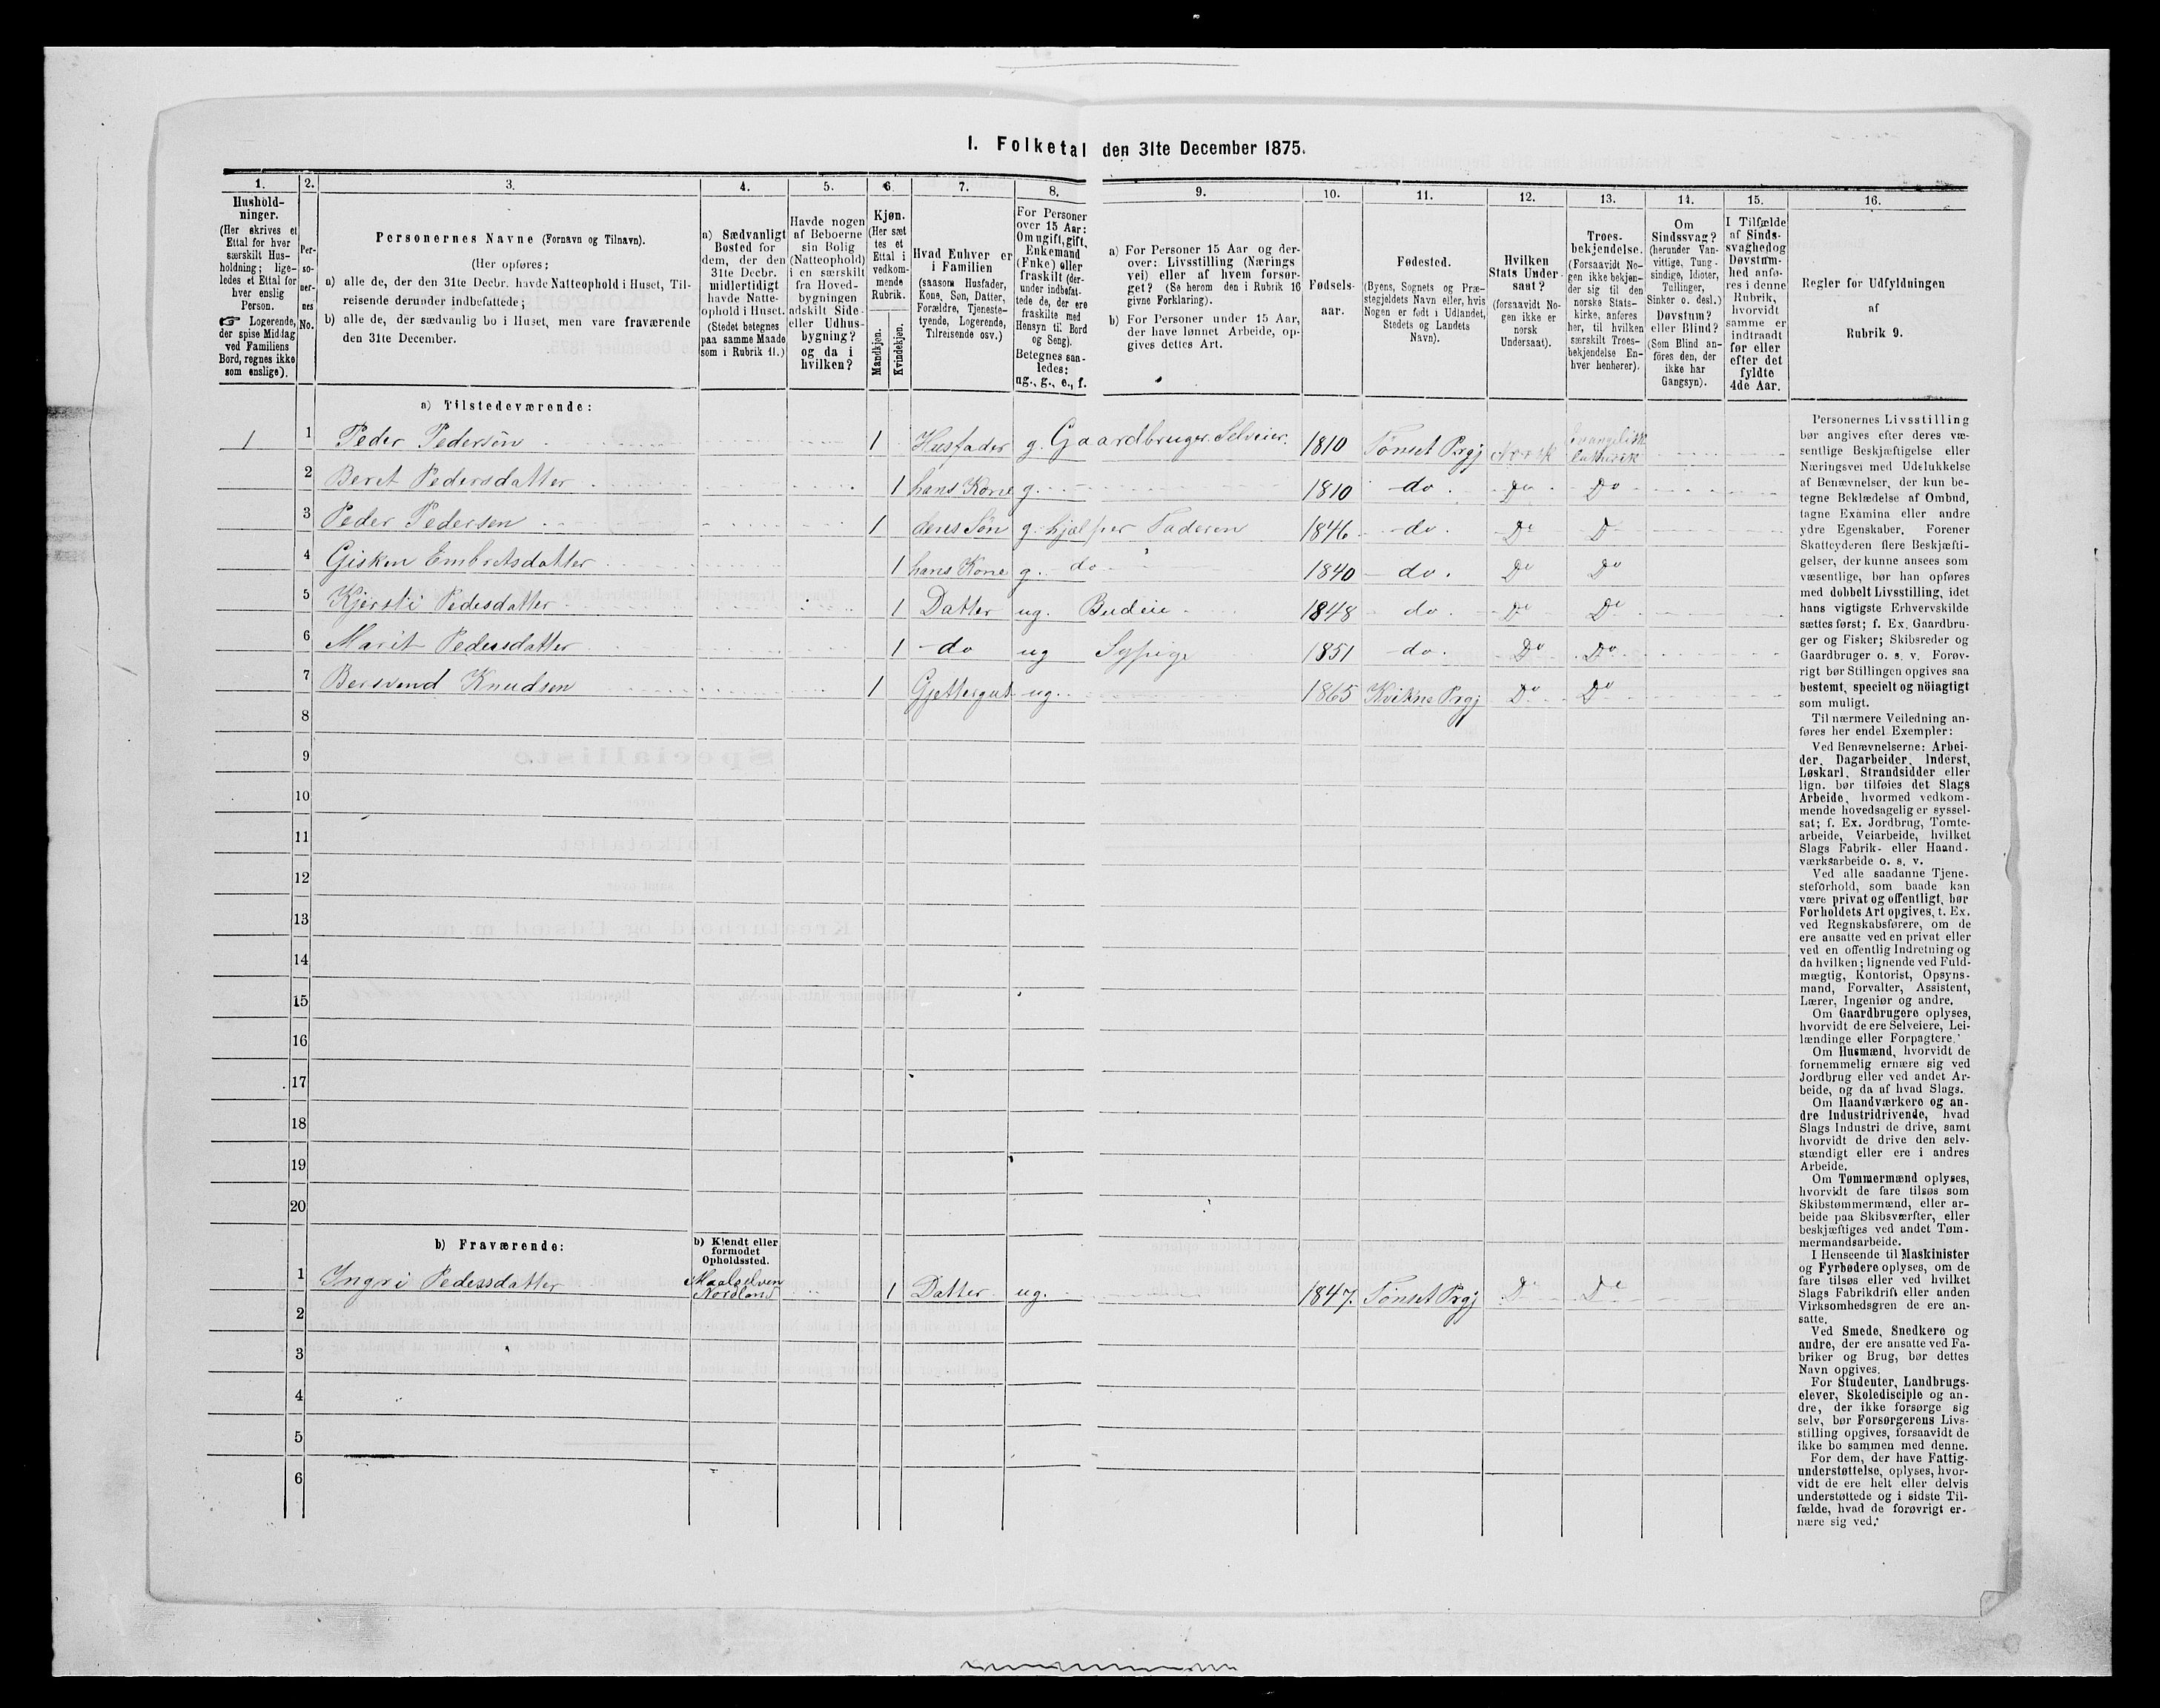 I. Folketal den 31te December 1875.
1. 2. 3. 4. 5. 6. 7. 8. 9. 10. 11. 12. 13. 14. 15. 16.
Hushold-
ninger.
(Her skrives et
Ettal for hver
særskilt Hus-
holdning; lige-
ledes et Ettal for
hver enslig
Person.
☞ Logerende,
der spise Middag
ved Familiens
Bord, regnes ikke
som enslige).
Per-
so-
ner-
nes
No.
Personernes Navne (Fornavn og Tilnavn).
(Her opføres;
a) alle de, der den 31te Decbr. havde Natteophold i Huset, Til-
reisende derunder indbefattede;
b) alle de, der sædvanlig bo i Huset, men vare fraværende
den 31te December.
a) Sædvanligt
Bosted for
dem, der den
31te Decbr.
midlertidigt
havde Natte-
ophold i Huset.
(Stedet betegnes
paa samme Maade
som i Rubrik 11.)
Havde nogen
af Beboerne
sin Bolig
(Natteophold)
i en særskilt
fra Hoved-
bygningen
adskilt Side-
eller Udhus-
bygning?
og da i
hvilken?
Kjøn.
(Her sæt
tes et
Ettal i
vedkom-
mende
Rubrik.
Mandkjøn.
Kvindekjøn.
Hvad Enhver er
i Familien
(saasom Husfader,
Kone, Søn, Datter,
Forældre, Tjeneste-
tyende, Logerende,
Tilreisende osv.)
For Personer
over 15 Aar:
Om ugift, gift,
Enkemand
(Enke) eller
fraskilt (der-
under indbefat-
tede de, der ere
fraskilte med
Hensyn til Bord
og Seng).
Betegnes saa-
ledes:
ug., g., e., f.
a) For Personer 15 Aar og der-
over: Livsstilling (Nærings
vei) eller af hvem forsør-
get? (Se herom den i Rubrik 16
givne Forklaring).
b) For Personer under 15 Aar,
der have lønnet Arbeide, op-
gives dettes Art.
Fødsels-
aar.
Fødested.
(Byens, Sognets og Præ-
stegjeldets Navn eller, hvis
Nogen er født i Udlandet,
Stedets og Landets
Navn).
Hvilken
Stats Under-
saat?
(forsaavidt No-
gen ikke er
norsk
Undersaat).
Troes-
bekjendelse.
(Forsaavidt No-
gen ikke bekjen-
der sig til den
norske Stats-
kirke, anføres
her, til hvilken
særskilt Troes-
bekjendelse En-
hver henhører).
Om
Sindssvag?
(herunder Van-
vittige, Tung-
sindige, Idioter,
Tullinger,
Sinker o. desl.)
Døvstum?
eller Blind?
(Som Blind an-
föres den, der
ikke har
Gangsyn).
I Tilfælde
af Sinds-
svaghed og
Døvstum-
hed anfø-
res i denne
Rubrik,
hvorvidt
samme er
indtraadt
før eller
efter det
fyldte
4de Aar.
Regler for Udfyldningen
af
Rubrik 9.
a) Tilstedeværende:
1 1 Peder Pedersön 1 Husfader g. Gaardbruger. Selveier. 1810 Tönset Prgj Norsk Evangelisk Lutherisk
2 Beret Pedersdatter 1 hans Kone g. 1810 do. Do Do
3 Peder Pedersen 1 deres Søn g. hjælper Faderen 1846 do. Do D
4 Gisken Embretsdatter 1 hans Kone g. do 1840 do. Do Do
5 Kjersti Pedesdatter 1 Datter ug. Budeie 1848 do. Do Do
6 Marit Pedersdatter 1 do ug Sypige 1851 do. Do Do
7 Bersvend Knudsen 1 Gjettergut ug. 1865 Kvikne Prgj Do Do
8
9
10
11
12
13
14
15
16
17
18
19
20
b) Fraværende:
b) Kjendt eller
formodet
Opholdssted.
1 Ingri Pedersdatter Maalselven Nordland 1 Datter ug. 1847. Tönset Prgj Do Do
2
3
4
5
6
Personernes Livsstilling
bør angives efter deres væ-
sentlige Beskjæftigelse eller
Næringsvei med Udelukkelse
af Benævnelser, der kun be-
tegne Beklædelse af Ombud,
tagne Examina eller andre
ydre Egenskaber. Forener
Skatteyderen flere Beskjæfti-
gelser, der kunne ansees som
væsentlige, bør han opføres
med dobbelt Livsstilling, idet
hans vigtigste Erhvervskilde
sættes først; f. Ex. Gaardbru-
ger og Fisker; Skibsreder og
Gaardbruger o. s. v. Forøv-
rigt bør Stillingen opgives saa
bestemt, specielt og nöiagtigt
som muligt.
Til nærmere Veiledning an-
føres her endel Exempler:
Ved Benævnelserne: Arbei-
der, Dagarbeider, Inderst,
Løskarl, Strandsidder eller
lign. bør tilføies det Slags
Arbeide, hvormed vedkom-
mende hovedsagelig er syssel-
sat; f. Ex. Jordbrug, Tomte-
arbeide, Veiarbeide, hvilket
Slags Fabrik- eller Haand-
værksarbeide o. s. v.
Ved alle saadanne Tjene-
steforhold, som baade kan
være privat og offentligt, bør
Forholdets Art opgives, t. Ex.
ved Regnskabsførere, om de
ere ansatte ved en privat eller
ved en offentlig Indretning og
da hvilken; lignende ved Fuld-
mægtig, Kontorist, Opsyns-
mand, Forvalter, Assistent,
Lærer, Ingeniør og andre.
Om Gaardbrugere oplyses,
hvorvidt de ere Selveiere, Lei-
lændinge eller Forpagtere.
Om Husmænd, hvorvidt de
fornemmelig ernære sig ved
Jordbrug eller ved andet Ar-
beide, og da af hvad Slags.
Om Haandværkere og an-
dre Industridrivende, hvad
Slags Industri de drive, samt
hvorvidt de drive den selv-
stændigt eller ere i andres
Arbeide.
Om Tømmermænd oplyses,
hvorvidt de fare tilsøs som
Skibstømmermænd, eller ar-
beide paa Skibsværfter, eller
beskjæftiges ved andet Tøm-
mermandsarbeide.
I Henseende til Maskinister
og Fyrbødere oplyses, om de
fare tilsøs eller ved hvilket
Slags Fabrikdrift eller anden
Virksomhedsgren de ere an-
satte.
Ved Smede, Snedkere og
andre, der ere ansatte ved Fa-
briker og Brug, bør dettes
Navn opgives.
For Studenter, Landbrugs-
elever, Skoledisciple og an-
dre, der ikke forsørge sig
selv, bør Forsørgerens Livs-
stilling opgives, forsaavidt de
ikke bo sammen med denne.
For dem, der have Fattig-
understøttelse, oplyses, hvor-
vidt de ere helt eller delvis
understøttede og i sidste Til-
fælde, hvad de forøvrigt er-
nære sig ved.